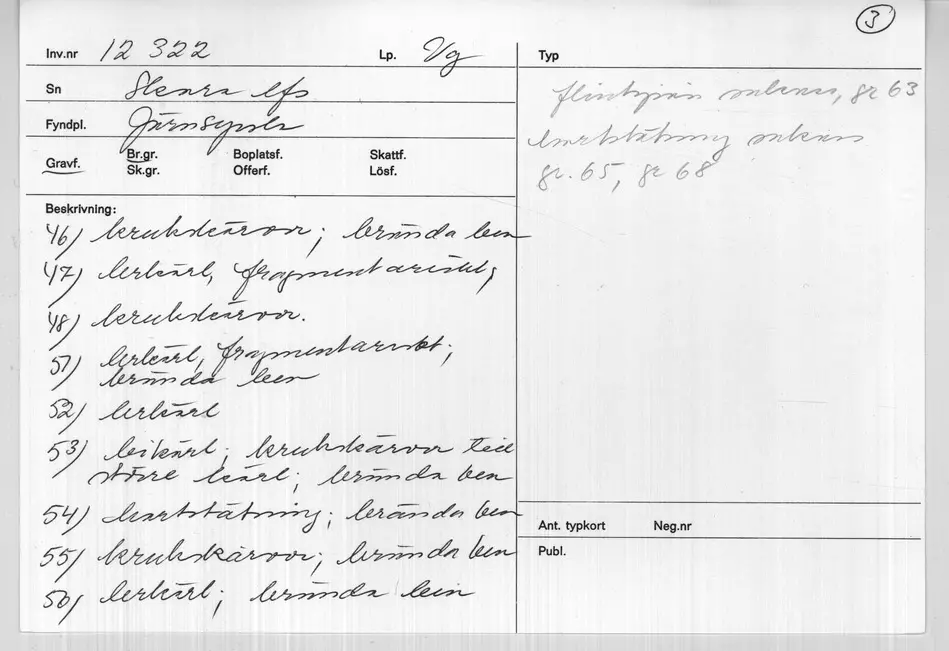 3
Inv.nr 12 322 Lp. Vg
Sn Skara lfs
Fyndpl. Järnsyssla
Gravf. Br.gr. Boplatsf. Skattf.
Sk.gr. Offerf. Lösf.
Beskrivning:
46) krukskärvor; brända ben
47) lerkärl, fragmentariskt;
48) krukskärvor.
51) lerkärl, fragmentariskt;
brända ben
52) lerkärl
53) bikärl; krukskärvor till
större kärl; brända ben
54) hartstätning; brända ben
55) krukskärvor; brända ben
56) lerkärl; brända ben
Typ
saknas, gr 63
hartstätning saknas
gr. 65, gr 68
Ant. typkort Neg.nr
Publ.